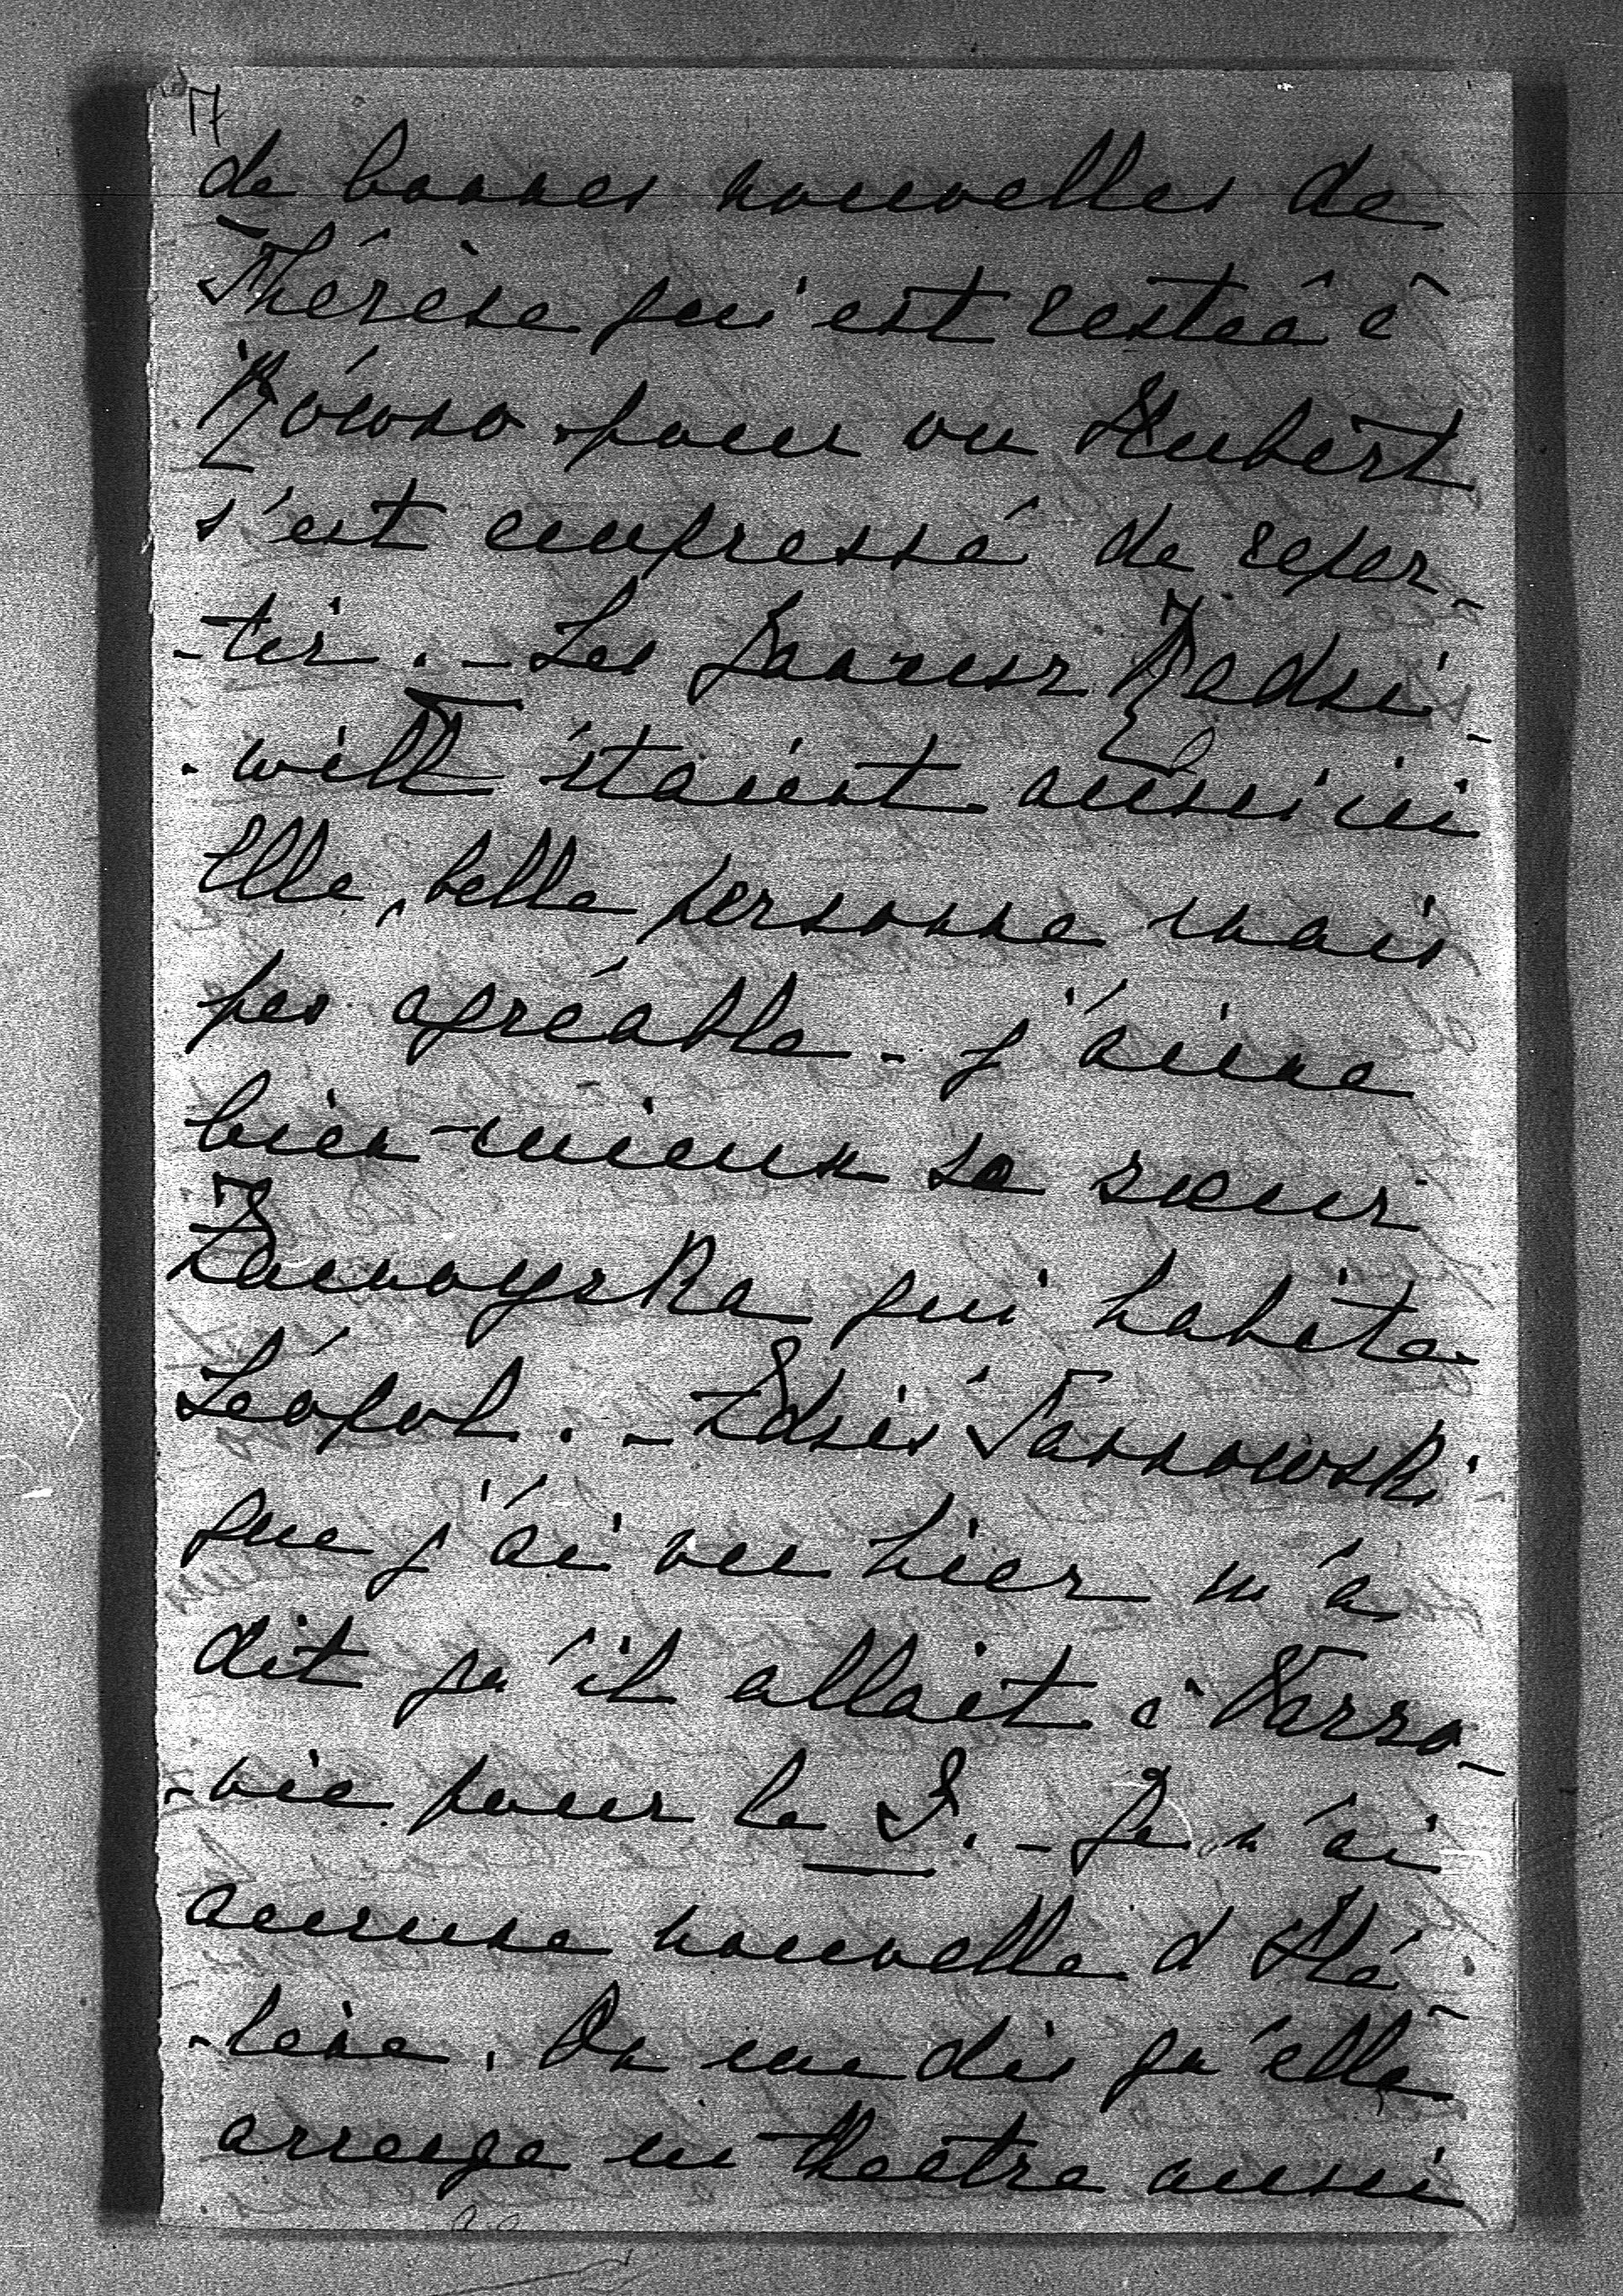 17
de bonnes nouvelles de
Thérèse qui est restée à
Równo pour ou Hubert
s'est empressé de repar-
-tir. - Les Janusz Radzi-
-will étaient aussi ici
Elle, belle personne mais
pas agréable - j'aime
bien mieux sa sœur
Zamoyska qui habite
Léopol. - Zdziś Tarnowski
que j'ai vu hier m'a
dit qu'il allait à Varso-
-vie pour le - Je n'ai
aucune nouvelle d'Hé-
-lène. On me dis qu'elle
arrange un theatre aussi